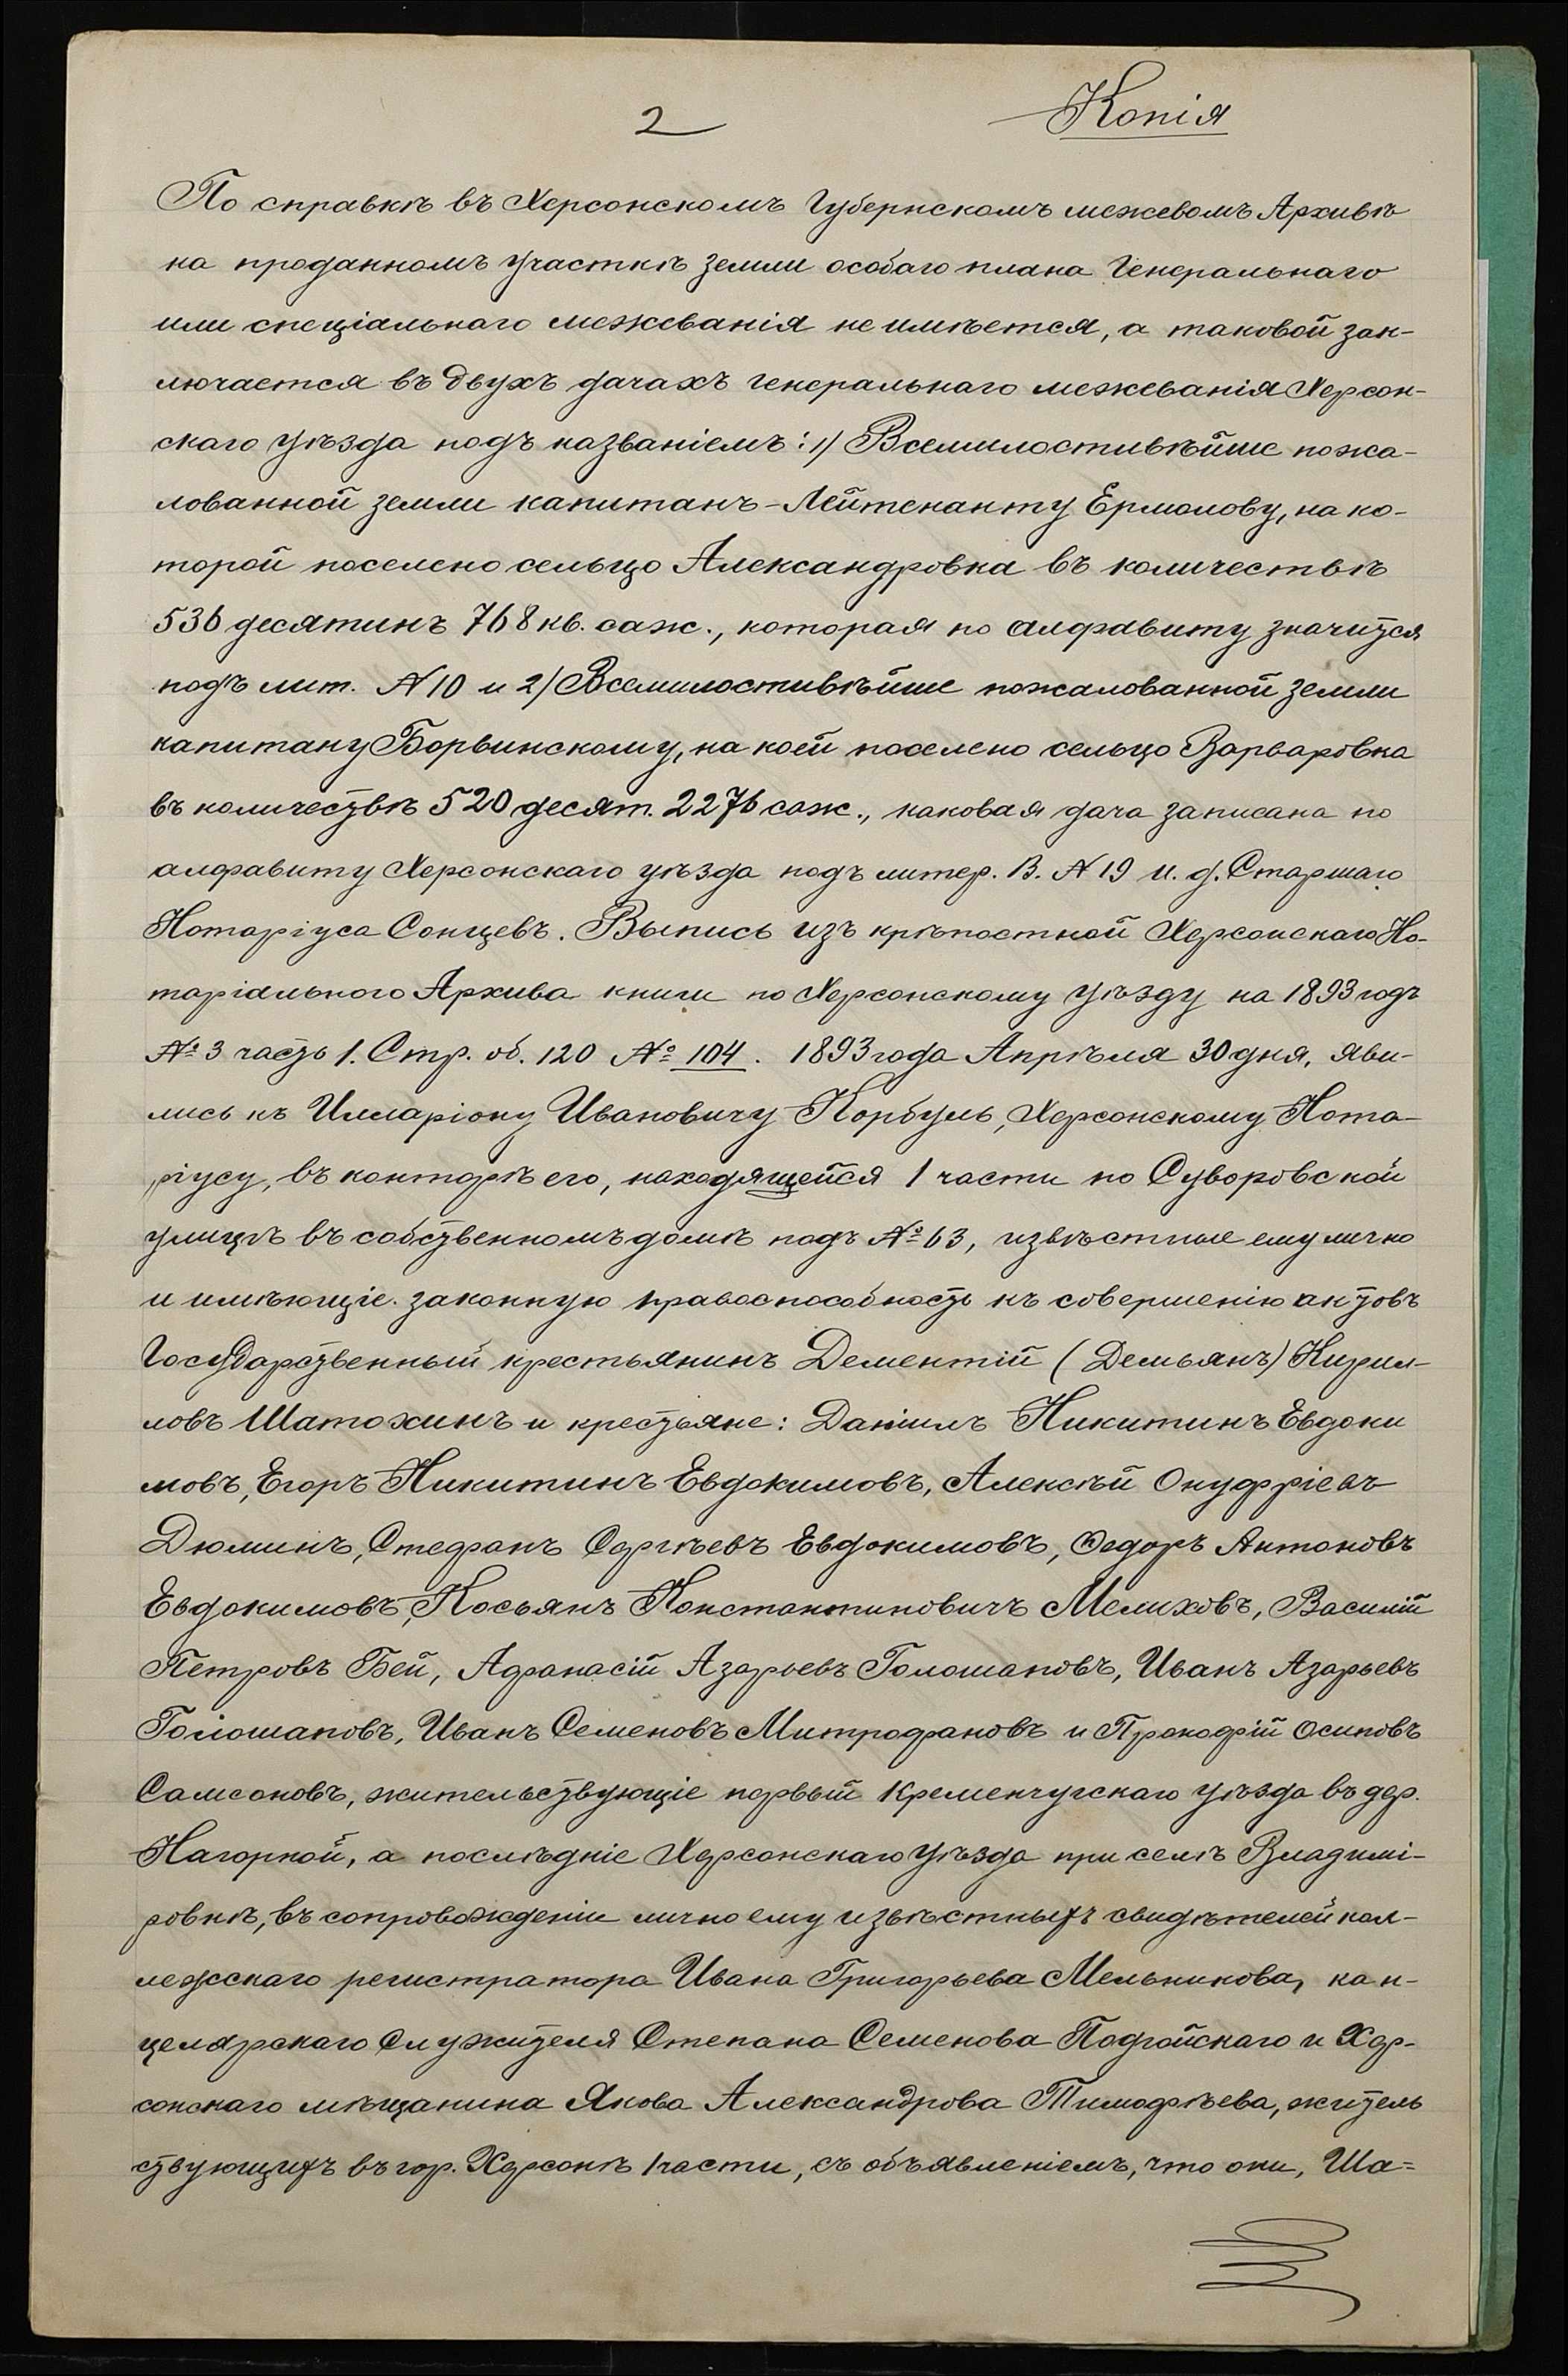 2
Копія
По справкѣ въ Херсонскомъ Губернскомъ межевомъ Архивѣ
на проданномъ участкѣ земли особаго плана Генеральнаго
или спеціальнаго межеванія не имѣется, а таковой зак-
лючается въ двухъ дачахъ генеральнаго межеванія Херсон-
скаго уѣзда подъ названіемъ: 1) Всемилостивѣйше пожа-
лованной земли капитанъ-Лейтенанту Ермолову, на ко-
торой поселено сельцо Александровка въ количествѣ
536 десятинъ 768 кв. саж., которая по алфавиту значится
подъ лит. А N 10 и 2) Всемилостивѣйше пожалованной земли
капитану Борвинскому, на коей поселено сельцо Варваровка
въ количествѣ 520 десят. 2276 саж., каковая дача записана по
алфавиту Херсонскаго уѣзда подъ литер. В. N 19 И. д. Старшаго
Нотаріуса Сонцевъ. Выпись изъ крѣпостной Херсонскаго Но-
таріальнаго Архива книги по Херсонскому уѣзду на 1893 годъ
№ 3 часть 1. Стр. об. 120 № 104. 1893 года Апрѣля 30 дня, яви-
лись къ Илларіону Ивановичу Корбуль, Херсонскому Нота-
ріусу, въ конторѣ его, находящейся 1 части по Суворовской
улицѣ въ собственномъ домѣ подъ № 63, извѣстные ему лично
и имѣющіе законную правоспособность къ совершенію актовъ
Государственный крестьянинъ Дементій (Демьянъ) Кирил-
ловъ Шатохинъ и крестьяне: Даніилъ Никитинъ Евдоки
мовъ, Егоръ Никитинъ Евдокимовъ, Алексѣй Онуфріевъ
Дюминъ, Стефанъ Сергѣевъ Евдокимовъ, Федоръ Антоновъ
Евдокимовъ, Косьянъ Константиновичъ Мелиховъ, Василій
Петровъ Бей, Афанасій Азарьевъ Голошаповъ, Иванъ Азарьевъ
Голошаповъ, Иванъ Семеновъ Митрофановъ и Прокофій Осиповъ
Самсоновъ, жительствующіе первый Кременчугскаго уѣзда въ дер.
Нагорной, а послѣдніе Херсонскаго уѣзда при селѣ Владимі-
ровкѣ, въ сопровожденіи лично ему извѣстныхъ свидѣтелей кол-
лежскаго регистратора Ивана Григорьева Мельникова, кан-
целярскаго служителя Степана Семенова Подгойскаго и Хер-
сонскаго мѣщанина Якова Александрова Тимофѣева, житель
ствующихъ въ гор. Херсонѣ 1 части, съ объявленіемъ, что они, Ша=